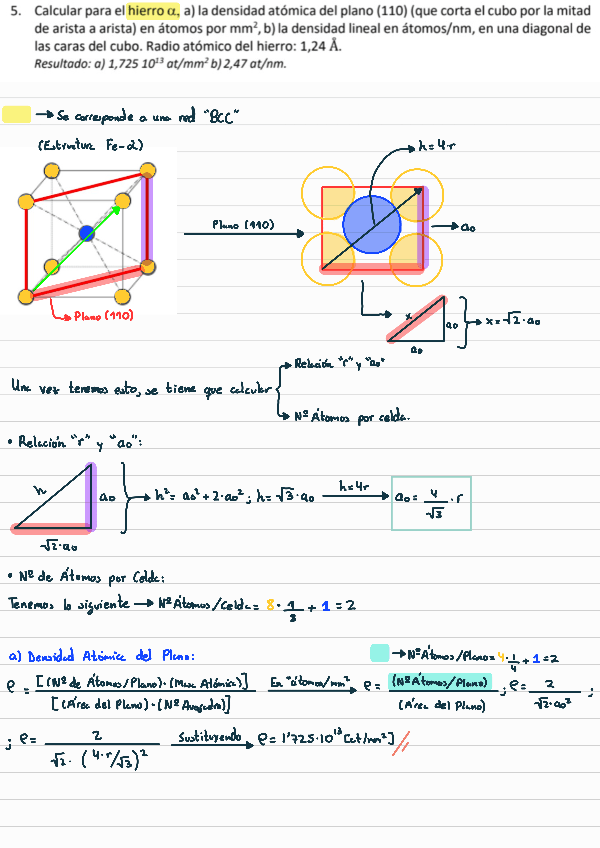 5. Calcular para el hierro α, a) la densidad atómica del plano (110) (que corta el cubo por la mitad
de arista a arista) en átomos por mm², b) la densidad lineal en átomos/nm, en una diagonal de
las caras del cubo. Radio atómico del hierro: 1,24 Å.
Resultado: a) 1,725 10¹³ at/mm² b) 2,47 at/nm.
→ Se corresponde a una red "BCC"
(Estructura Fe-α)
h=4r
Plano (110)
a₀
Plano (110)
x
a₀
a₀
x=√2·a₀
Una vez tenemos esto, se tiene que calcular
Relación "r" y "a₀"
Nº Átomos por celda.
• Relación "r" y "a₀":
h
a₀
√2·a₀
h²= a₀²+2·a₀²; h=√3·a₀
h=4r
a₀= 4/√3 · r
• Nº de Átomos por Celda:
Tenemos lo siguiente → Nº Átomos/Celda= 8·1/8 + 1 =2
a) Densidad Atómica del Plano:
→ NºÁtomos/Plano= 4·1/4 + 1 =2
ρ = [(Nº de Átomos/Plano)·(Masa Atómica)] / [(Área del Plano)·(Nº Avogadro)] En "átomos/mm² ρ= (NºÁtomos/Plano) / (Área del Plano) ; ρ= 2/√2·a₀² ;
; ρ= 2 / √2·(4·r/√3)² Sustituyendo ρ= 1'725·10¹³ [at/mm²] //